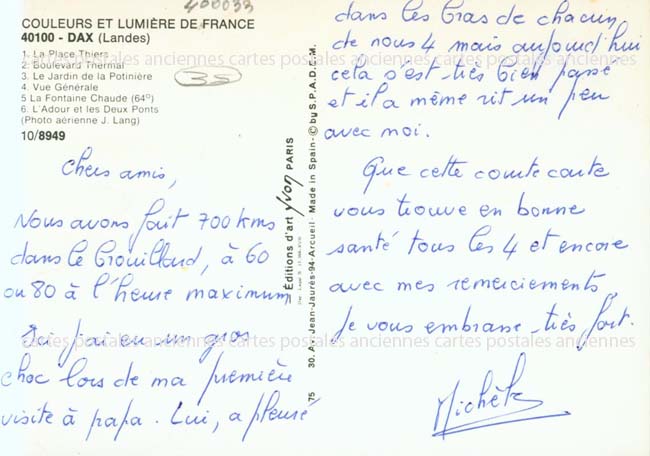 400033
COULEURS ET LUMIÈRE DE FRANCE
40100 - DAX (Landes)
1. La Place Thiers
2. Boulevard Thermal
3. Le Jardin de la Potinière
4. Vue Générale
5 La Fontaine Chaude (64º)
6. L'Adour et les Deux Ponts
(Photo aérienne J. Lang)
10/8949
35
cartes postales anciennes cartes postales anciennes cartes postales anciennes
Chers amis,
Nous avons fait 700 kms
dans le brouillard, à 60
ou 80 à l'heure maximum
Ici j'ai eu un gros
choc lors de ma première
visite à papa. Lui, a pleuré
Editions d'art yvon PARIS
30. Av. Jean-Jaurès-94-Arcueil - Made in Spain - © by S.P.A.D.E.M.
75
dans les bras de chacun
de nous 4 mais aujourd'hui
cela s'est très bien passé
et il a même rit un peu
avec moi.
Que cette courte carte
vous trouve en bonne
santé tous les 4 et encore
avec mes remerciements,
Je vous embrasse très fort.
cartes postales anciennes cartes postales anciennes cartes postales anciennes
Michèle